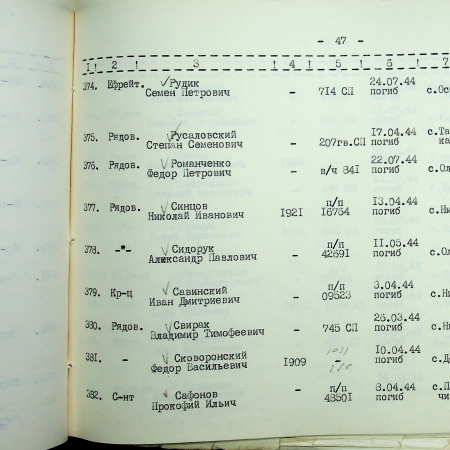 - 47 -
1 ! 2 ! 3 ! 4 ! 5 ! 6 ! 7
374. Ефрейт. Рудик 24.07.44
Семен Петрович - 714 СП погиб с.Ос
375. Рядов. Русаловский 17.04.44 с.Та
Степан Семенович - 207гв.СП погиб ка
376. Рядов. Романченко 22.07.44
Федор Петрович - в/ч 841 погиб с.Ол
377. Рядов. Синцов п/п 13.04.44
Николай Иванович 1921 16764 погиб с.Ни
378. -"- Сидорук п/п 11.05.44
Александр Павлович - 42691 погиб с.Ол
379. Кр-ц Савинский п/п 3.04.44
Иван Дмитриевич - 09523 погиб с.Ни
380. Рядов. Свирак 26.03.44
Владимир Тимофеевич - 745 СП погиб с.Ни
381. - Сковоронский 10.04.44
Федор Васильевич 1909 - погиб с.До
382. С-нт Сафонов п/п 8.04.44 с.П
Прокофий Ильич - 48501 погиб чи